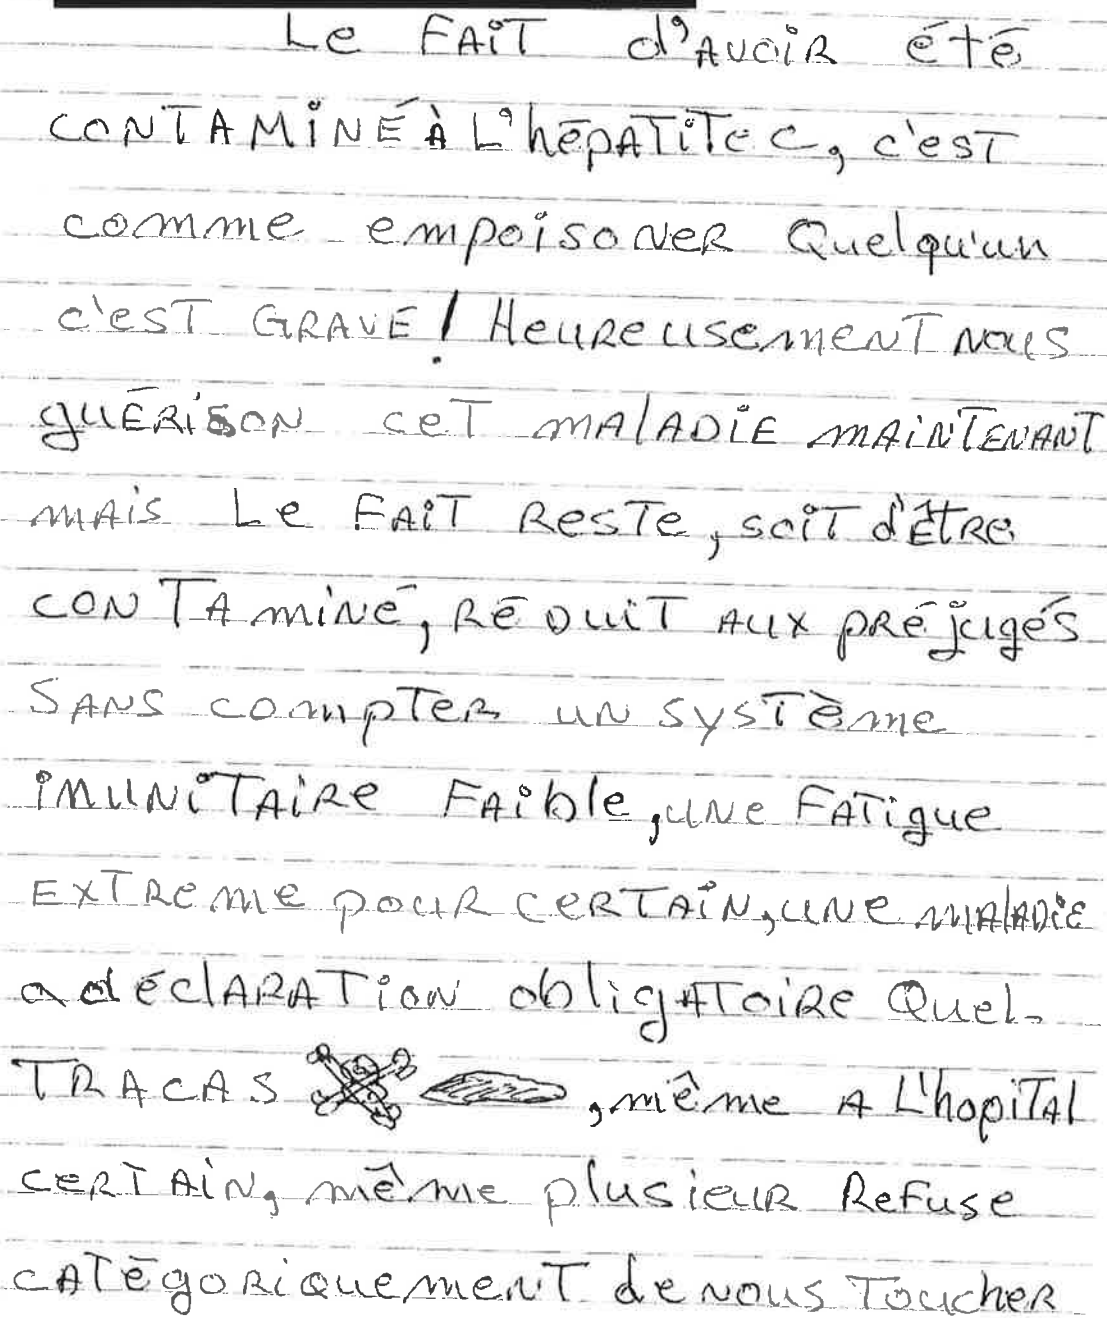 Le FAiT d'AVOiR été
CONTAMiNÉ À L'hépATiTe C, c'esT
comme empoisoNeR Quelqu'un
c'esT GRAVE! HeuReusemeNT Nous
guÉRiSON ceT mAlADiE mAiNTENANT
mAis Le FAiT ResTe, soiT d'ÊtRe
CONTAmiNé, RéDuiT Aux pRéjugés
SANS compTeR uN sysTème
iMUNiTAiRe FAible, uNe FATigue
ExTReme pouR ceRTAiN, uNe mAlADiE
a déclARATioN obligATOiRe Quel
TRACAS , même A L'hopiTAl
ceRTAiN, même plusieuR Refuse
CATégoRiquemeNT de Nous ToucheR